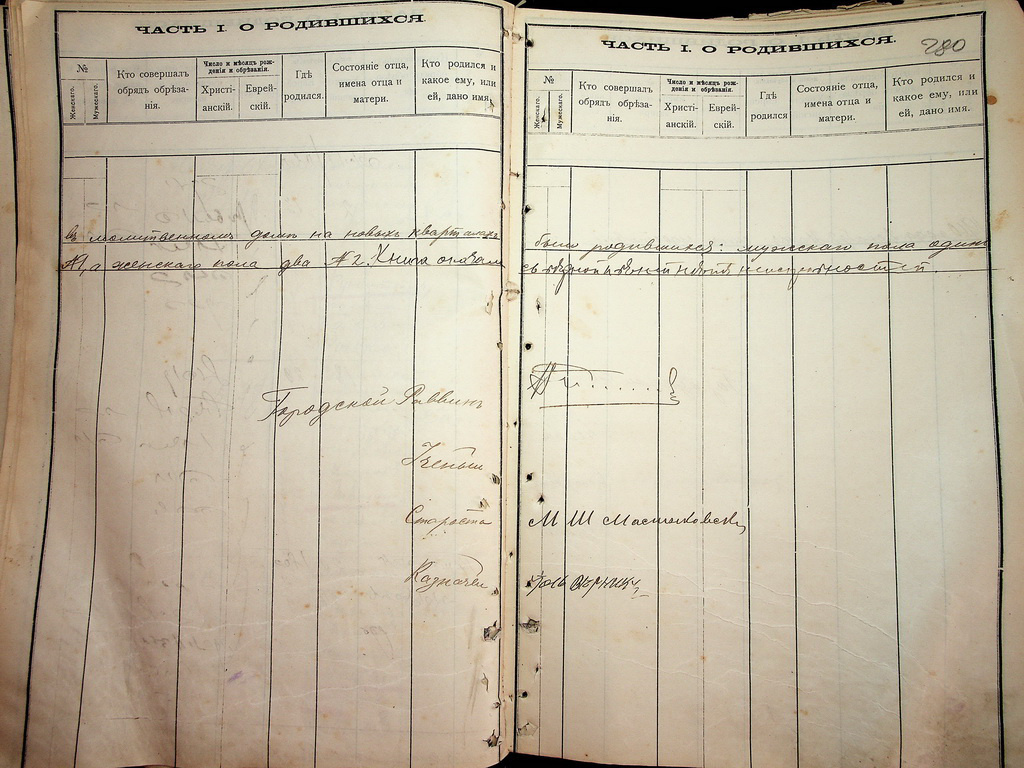 ЧАСТЬ I. О РОДИВШИХСЯ.
№
Женскаго.
Мужескаго.
Кто совершалъ обрядъ обрѣзанія.
Число и мѣсяцъ рожденія и обрѣзанія.
Христіанскій.
Еврейскій.
Гдѣ родился.
Состояніе отца, имена отца и матери.
Кто родился и какое ему, или ей, дано имя.
въ молитвенномъ домѣ на новыхъ кварталахъ
№1, а женскаго пола два №2. Книга
Городской Раввинъ
Ученый
Староста
Казначей
ЧАСТЬ I. О РОДИВШИХСЯ.
280
№
Женскаго.
Мужескаго.
Кто совершалъ обрядъ обрѣзанія.
Число и мѣсяцъ рожденія и обрѣзанія.
Христіанскій.
Еврейскій.
Гдѣ родился
Состояніе отца, имена отца и матери.
Кто родился и какое ему, или ей, дано имя.
было родившихся: мужскаго пола одинъ
М Ш